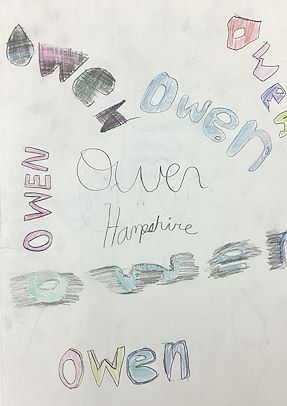 Owen
Owen
Owen
OWEN
Owen
Hampshire
owen
Owen